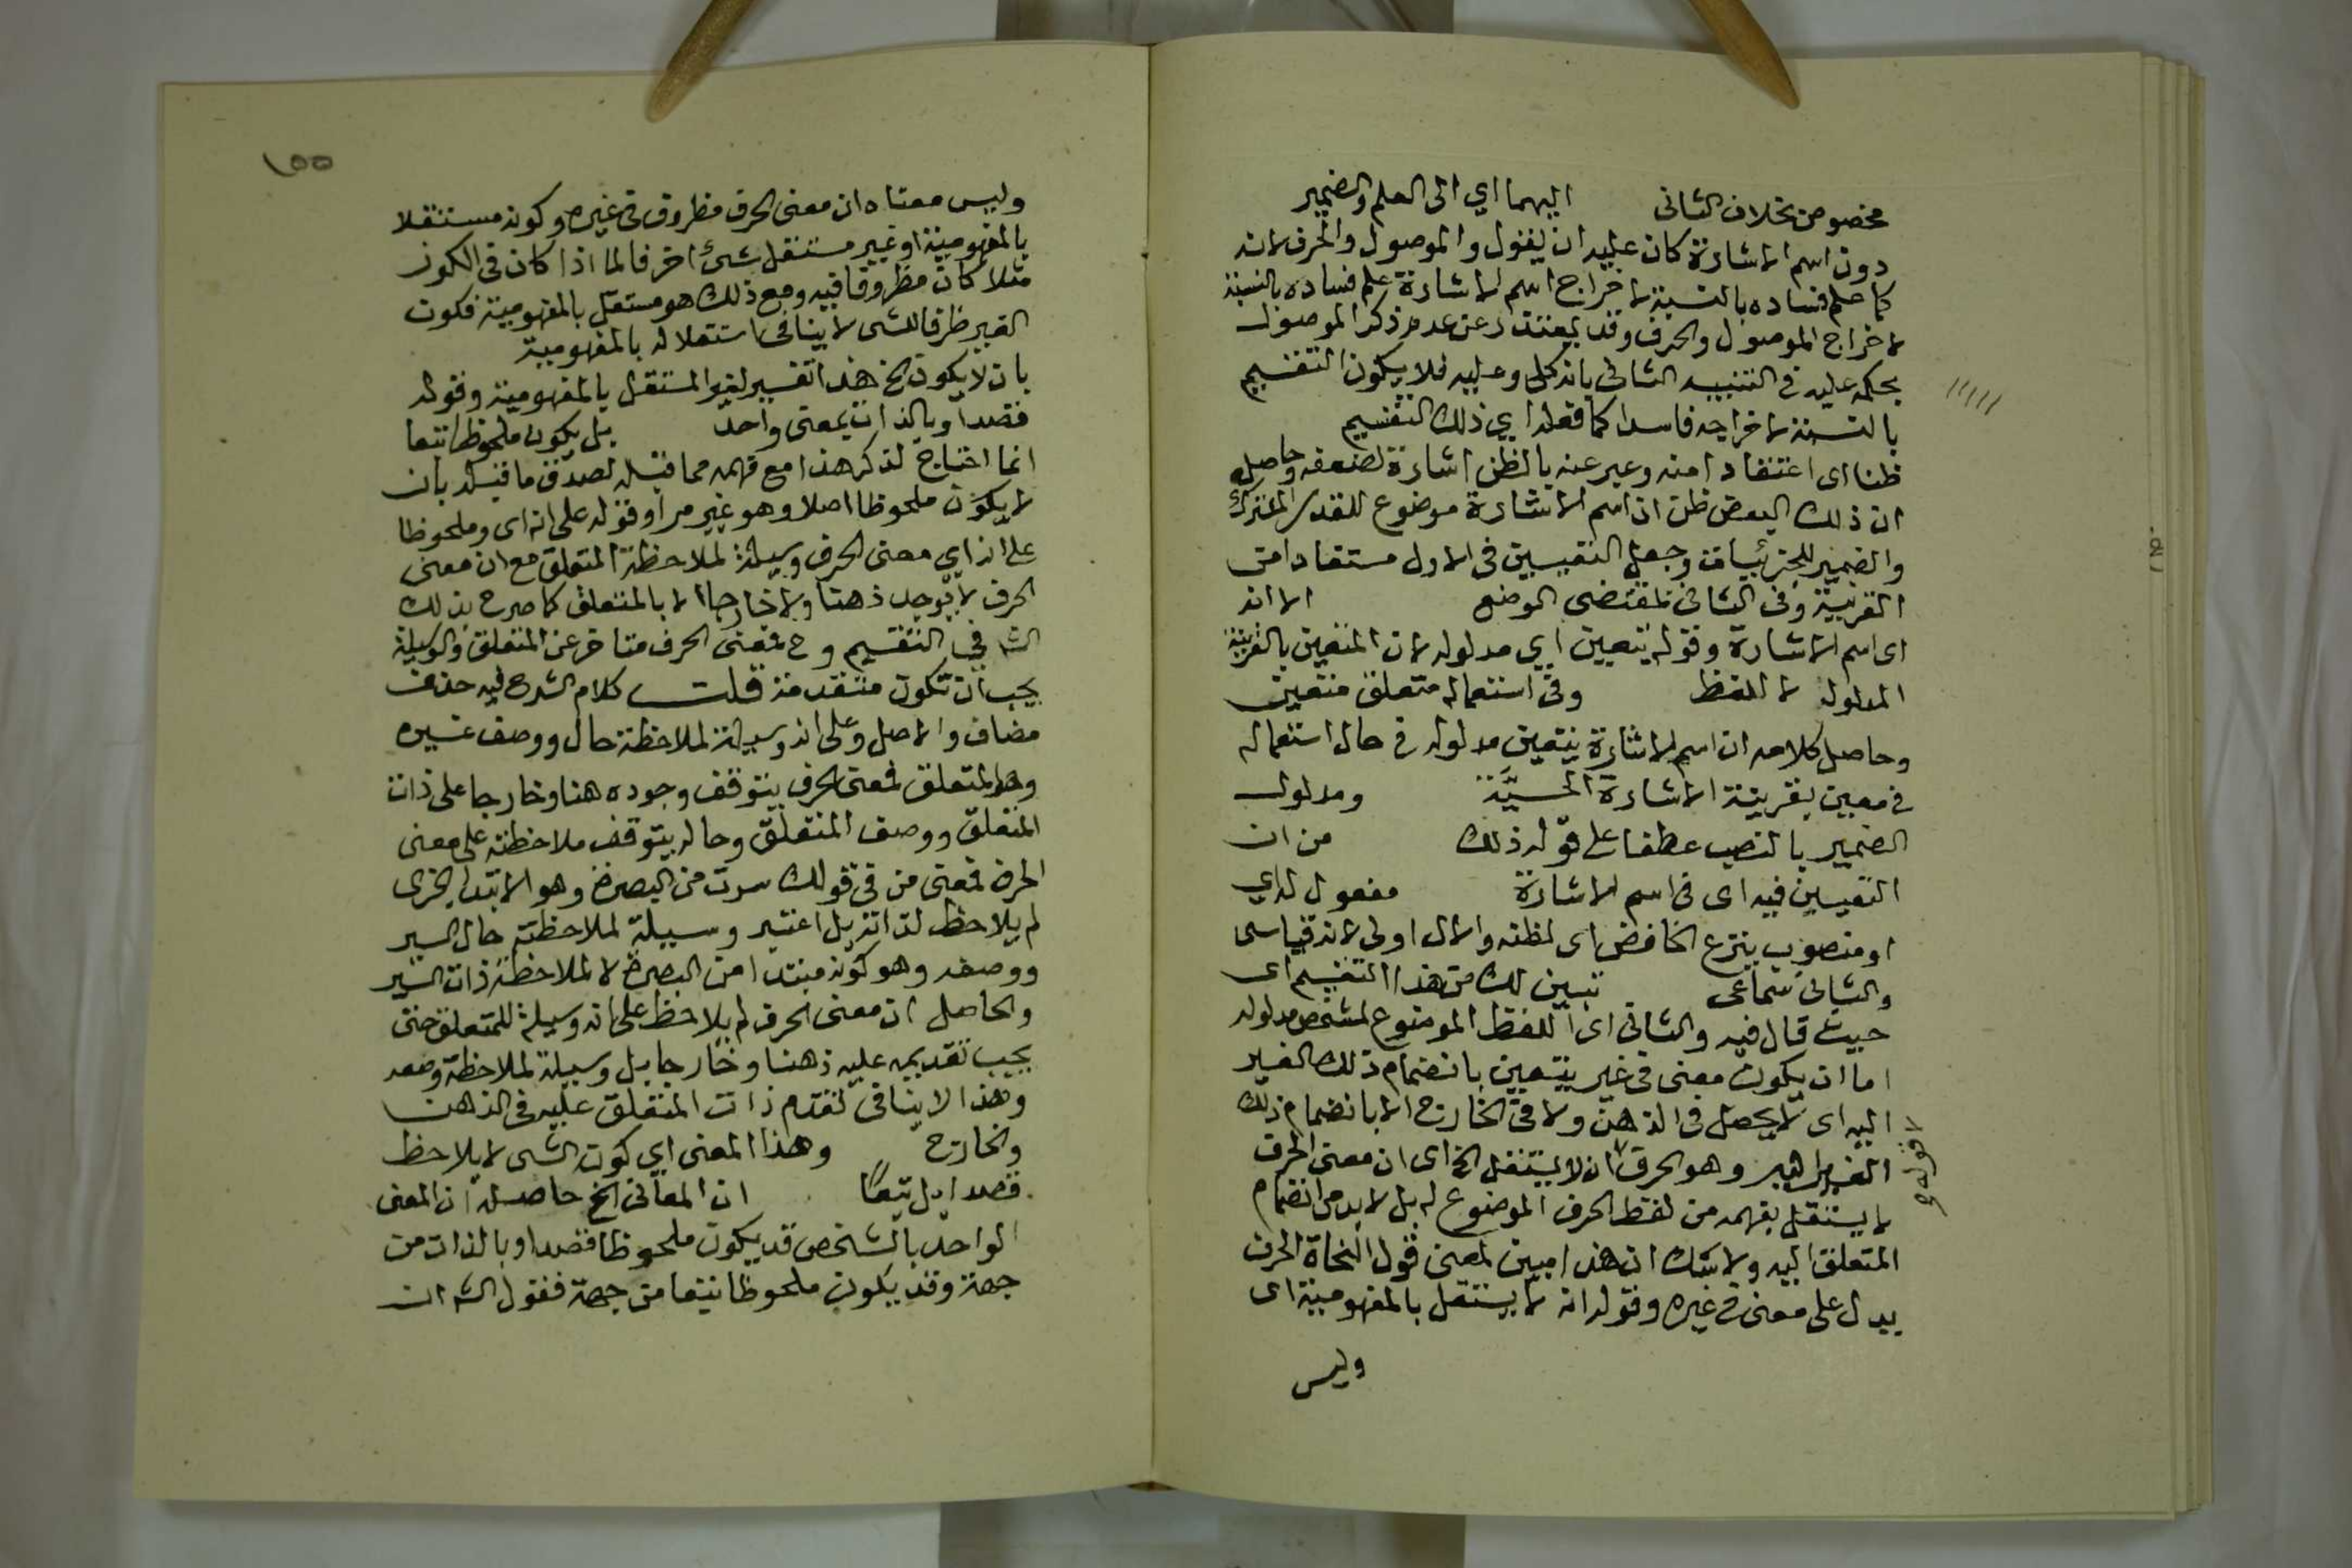 مخصوص بخلاف الثانى اليهما اي الى العلم والضمير
دون اسم الاشارة كان عليه ان يقول والموصول والحرف لانه
كما علم فساده بالنسبة لاخراج اسم الاشارة علم فساده بالنسبة
لاخراج الموصول والحرف وقد يعتذر عن عدم ذكر الموصول
بحكمه عليه في التنبيه الثاني بانه كلي وعليه فلا يكون التقسيم
بالنسبة لاخراجه فاسدا كما فعله اي ذلك التقسيم
ظنا اى اعتقادا منه وعبر عنه بالظن اشارة لضعفه وحاصله
ان ذلك البعض ظن ان اسم الاشارة موضوع للقدر المشترك
والضمير للجزئيات وجعل التعيين فى الاول مستفادا من
القرينة وفى الثانى بمقتضى الوضع الا انه
اى اسم الاشارة وقوله يتعين اي مدلوله لان المتعين بالقرينة
المدلول لا اللفظ وفى استعماله متعلق بتعين
وحاصل كلامه ان اسم الاشارة يتعين مدلوله فى حال استعماله
فى معين بقرينة الاشارة الحسيّة ومدلول
الضمير بالنصب عطفا على قوله ذلك من ان
التعيين فيه اى فى اسم الاشارة مفعول لداي
او منصوب بنزع الخافض اى لظنه والاول اولى لانه قياسى
والثانى سماعى تبين لك من هذا التقسيم اى
حيث قال فيه والثانى اى اللفظ الموضوع لمشخص مدلوله
اما ان يكون معنى فى غير يتعين بانضمام ذلك الغير
اليه اى لا يحصل فى الذهن ولا فى الخارج الا بانضمام ذلك
الغير اليه وهو الحرف ان لا يستقل الخ اى ان معنى الحرف
لا يستقل بفهمه من لفظ الحرف الموضوع له بل لابد من انضمام
المتعلق اليه ولا شك ان هذا مبين لمعنى قول النحاة الحرف
يدل على معنى فى غيره وقوله انه لا يستقل بالمفهومية اى
وليس
قوله
١٥٥
وليس معناه ان معنى الحرف مظروف فى غيره وكونه مستقلا
بالمفهومية او غير مستقل شئ اخر فالما اذا كان فى الكوز
مثلا كان مظروفا فيه ومع ذلك هو مستقل بالمفهومية فكون
الغير ظرفا للشى لا ينافى استقلاله بالمفهومية
بان لا يكون الخ هذا تفسير لغير المستقل بالمفهومية وقوله
قصدا وبالذات بمعنى واحد بل يكون ملحوظا تبعا
انما احتاج لذكر هذا مع فهمه مما قبله لصدق ما قبله بان
لا يكون ملحوظا اصلا وهو غير مراد وقوله على انه اى وملحوظا
على انه اي معنى الحرف وسيلة لملاحظة المتعلق مع ان معنى
الحرف لا يوجد ذهنا ولا خارجا الا بالمتعلق كما صرح بذلك
الش فى التقسيم وح فمعنى الحرف متاخر عن المتعلق والوسيلة
يجب ان تكون متقدمة قلت كلام الشرح فيه حذف
مضاف والاصل وعلى انه وسيلة لملاحظة حال ووصف غيره
وهو المتعلق فمعنى الحرف يتوقف وجوده هنا وخارجا على ذات
المتعلق ووصف المتعلق وحاله يتوقف ملاحظته على معنى
الحرف فمعنى من فى قولك سرت من البصرة وهو الابتدا الجزى
لم يلاحظ لذاته بل اعتبر وسيلة لملاحظة حال السير
ووصفه وهو كونه مبتدا من البصرة لا لملاحظة ذات السير
والحاصل ان معنى الحرف لم يلاحظ على انه وسيلة للمتعلق حتى
يجب تقديمه عليه ذهنا وخارجا بل وسيلة لملاحظة وصفه
وهذا لا ينافى تقدم ذات المتعلق عليه فى الذهن
والخارج وهذا المعنى اي كون الشى لا يلاحظ
قصدا بل تبعًا ان المعانى الخ حاصله ان المعنى
الواحد بالشخص قد يكون ملحوظا قصدا وبالذات من
جهة وقد يكون ملحوظا تبعا من جهة فقول الش ان